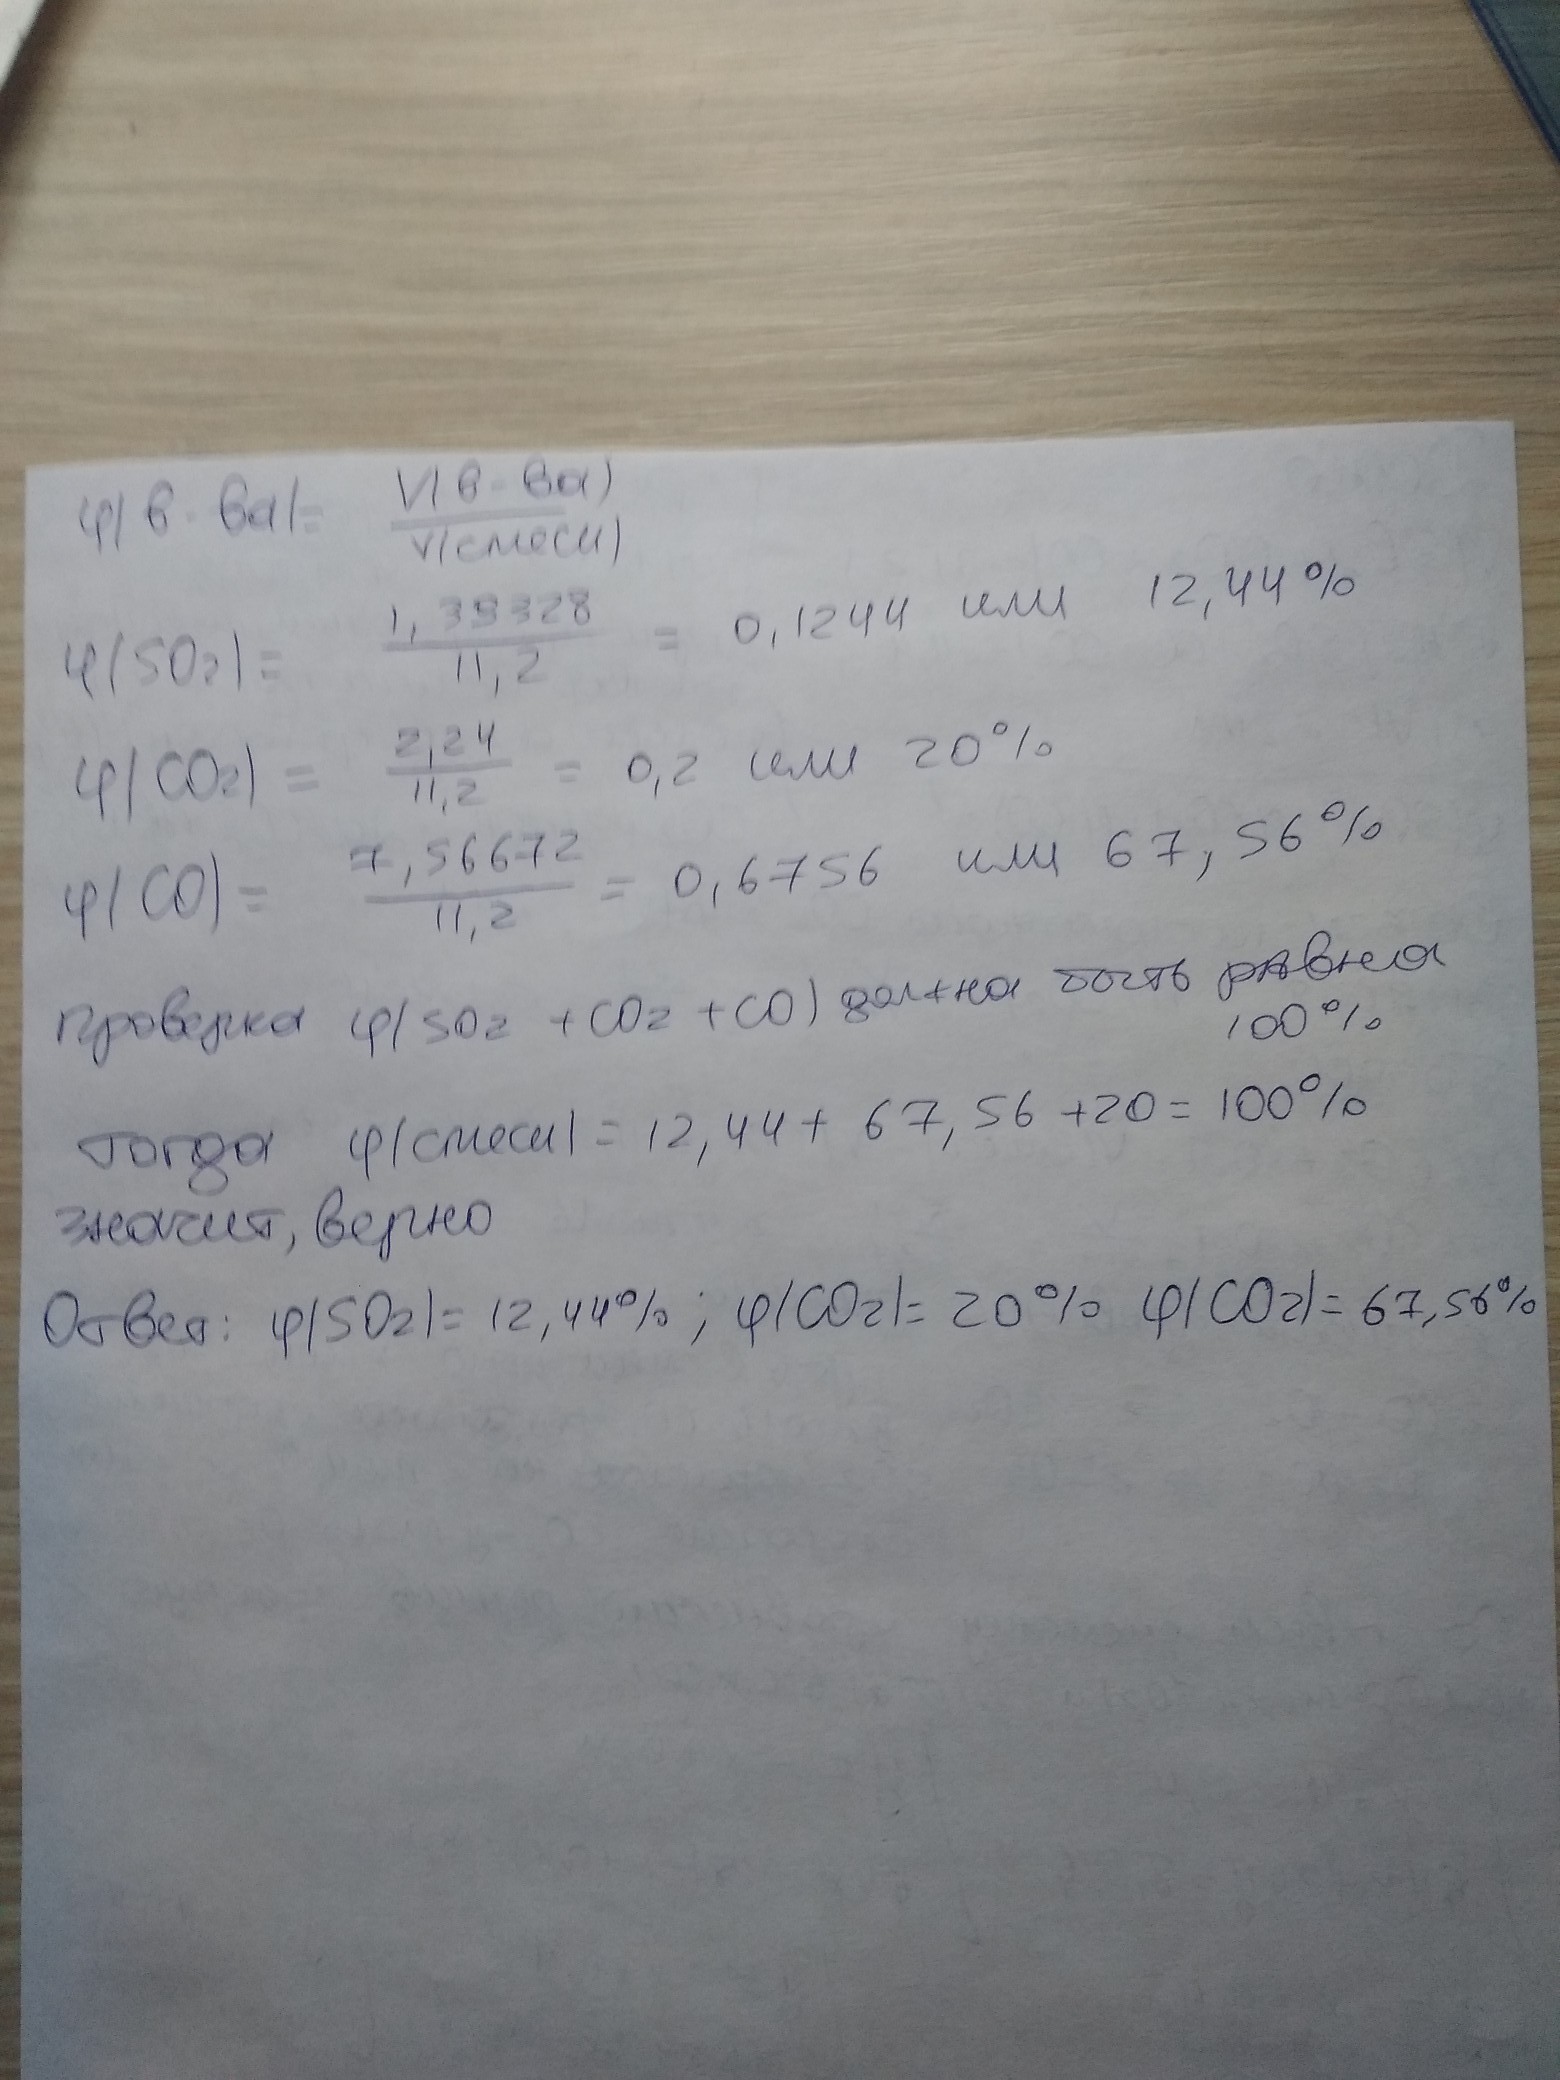 φ(в-ва)= V(в-ва)/V(смеси)
φ(SO2)= 1,39328/11,2 = 0,1244 или 12,44%
φ(CO2)= 2,24/11,2 = 0,2 или 20%
φ(CO)= 7,56672/11,2 = 0,6756 или 67,56%
проверка φ(SO2 +CO2 +CO) должна быть равна
100%
тогда φ(смеси)= 12,44+ 67,56 +20= 100%
значит, верно
Ответ: φ(SO2)= 12,44%; φ(CO2)= 20% φ(CO2)= 67,56%